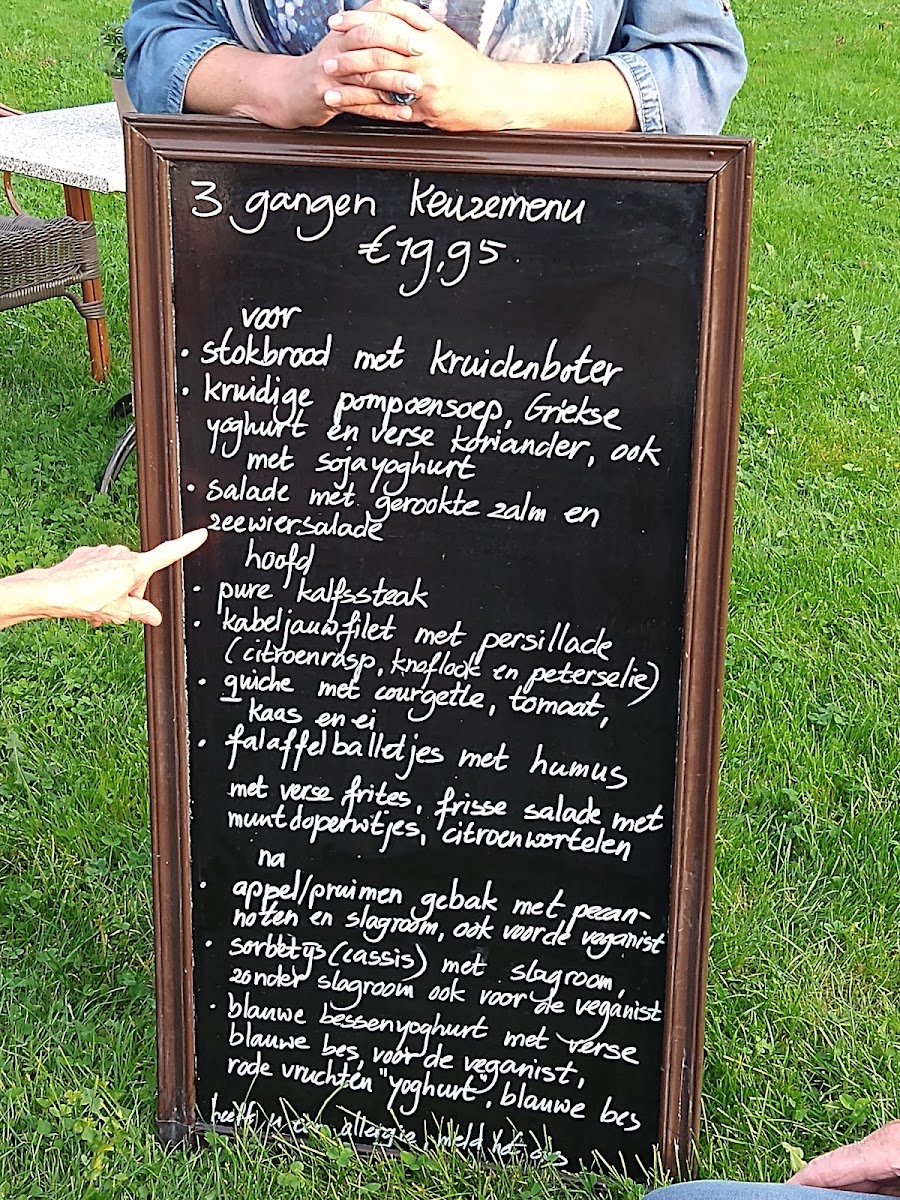 3 gangen keuzemenu
€19,95
voor
• stokbrood met kruidenboter
• kruidige pompoensoep, Griekse
yoghurt en verse koriander, ook
met sojayoghurt
• salade met gerookte zalm en
zeewiersalade
hoofd
• pure kalfssteak
• kabeljauwfilet met persillade
(citroenrasp, knoflook en peterselie)
• quiche met courgette, tomaat,
kaas en ei
• falaffelballetjes met humus
met verse frites, frisse salade met
munt doperwtjes, citroenwortelen
na
• appel/pruimen gebak met pecan-
noten en slagroom, ook voor de veganist
• sorbetijs (cassis) met slagroom,
zonder slagroom ook voor de veganist
• blauwe bessenyoghurt met verse
blauwe bes, voor de veganist,
rode vruchten "yoghurt", blauwe bes
heeft u een allergie, meld het ons